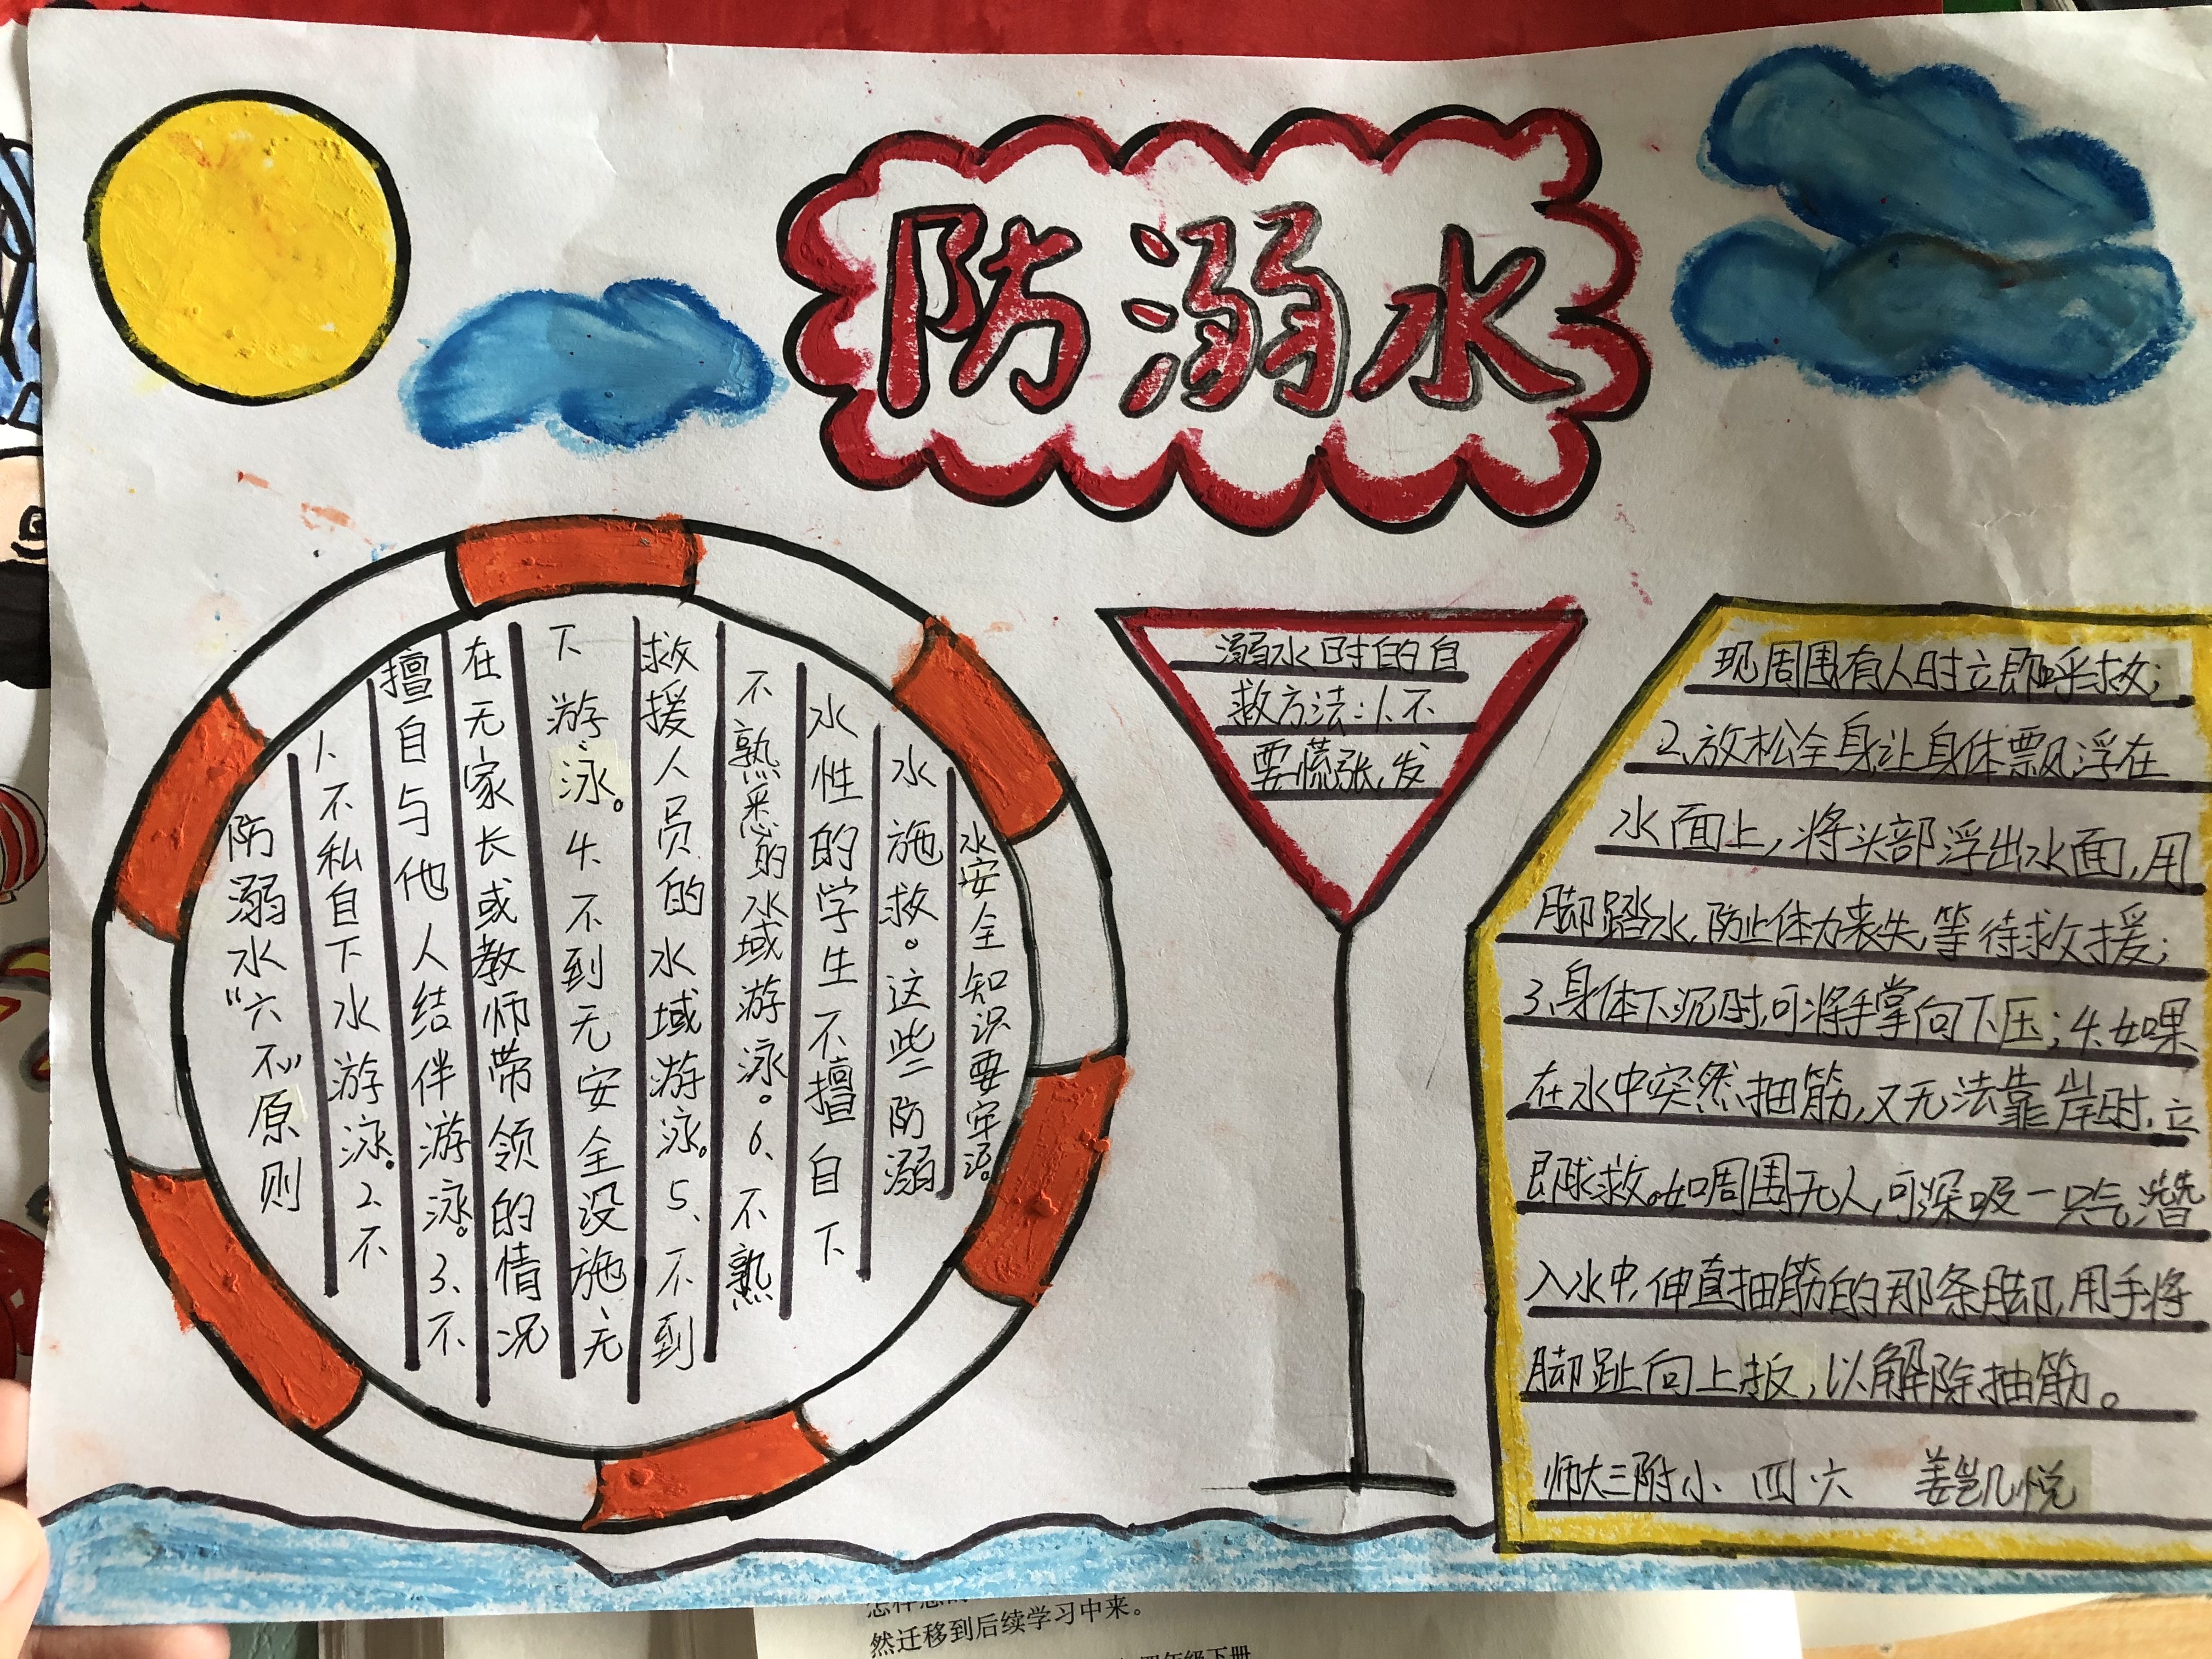 防溺水
防溺水“六不”原则
1、不私自下水游泳。2、不
擅自与他人结伴游泳。3、不
在无家长或教师带领的情况
下游泳。4、不到无安全设施、无
救援人员的水域游泳。5、不到
不熟悉的水域游泳。6、不熟
水性的学生不擅自下
水施救。这些防溺
水安全知识要牢记。
溺水时的自
救方法:1、不
要慌张,发
现周围有人时立即呼救;
2、放松全身,让身体飘浮在
水面上,将头部浮出水面,用
脚踏水,防止体力丧失,等待救援;
3、身体下沉时,可将手掌向下压;4、如果
在水中突然抽筋,又无法靠岸时,立
即求救。如周围无人,可深吸一口气潜
入水中,伸直抽筋的那条脚,用手将
脚趾向上扳,以解除抽筋。
师大三附小 四、六 姜凯悦
然迁移到后续学习中来。